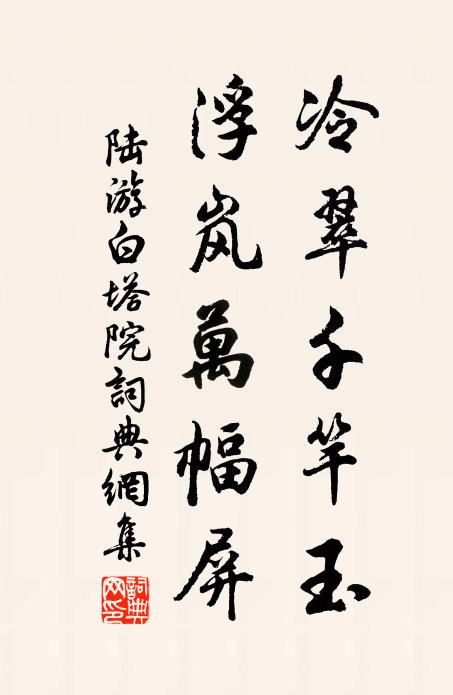 冷翠千竿玉
浮岚萬幅屏
陆游白塔院詞典網集
詞典网印